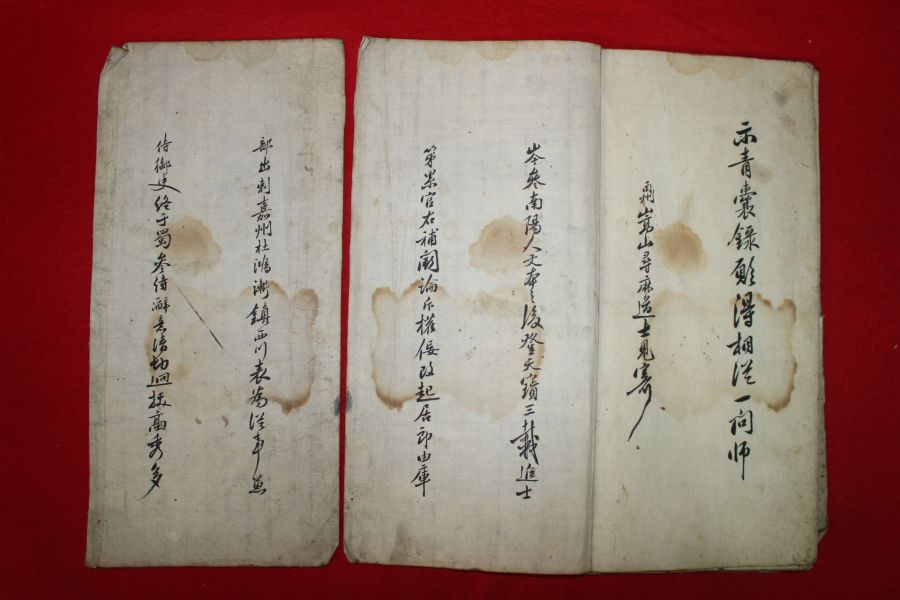 示青囊錄願得相從一問師
酬嵩山尋麻道士見寄
岑參南陽人文本之後登天寶三載進士
第累官右補闕論斥權佞改起居郎由庫
部出刺嘉州杜鴻漸鎮西川表為從事兼
侍御史終于蜀參詩辭意清切迥拔高秀多